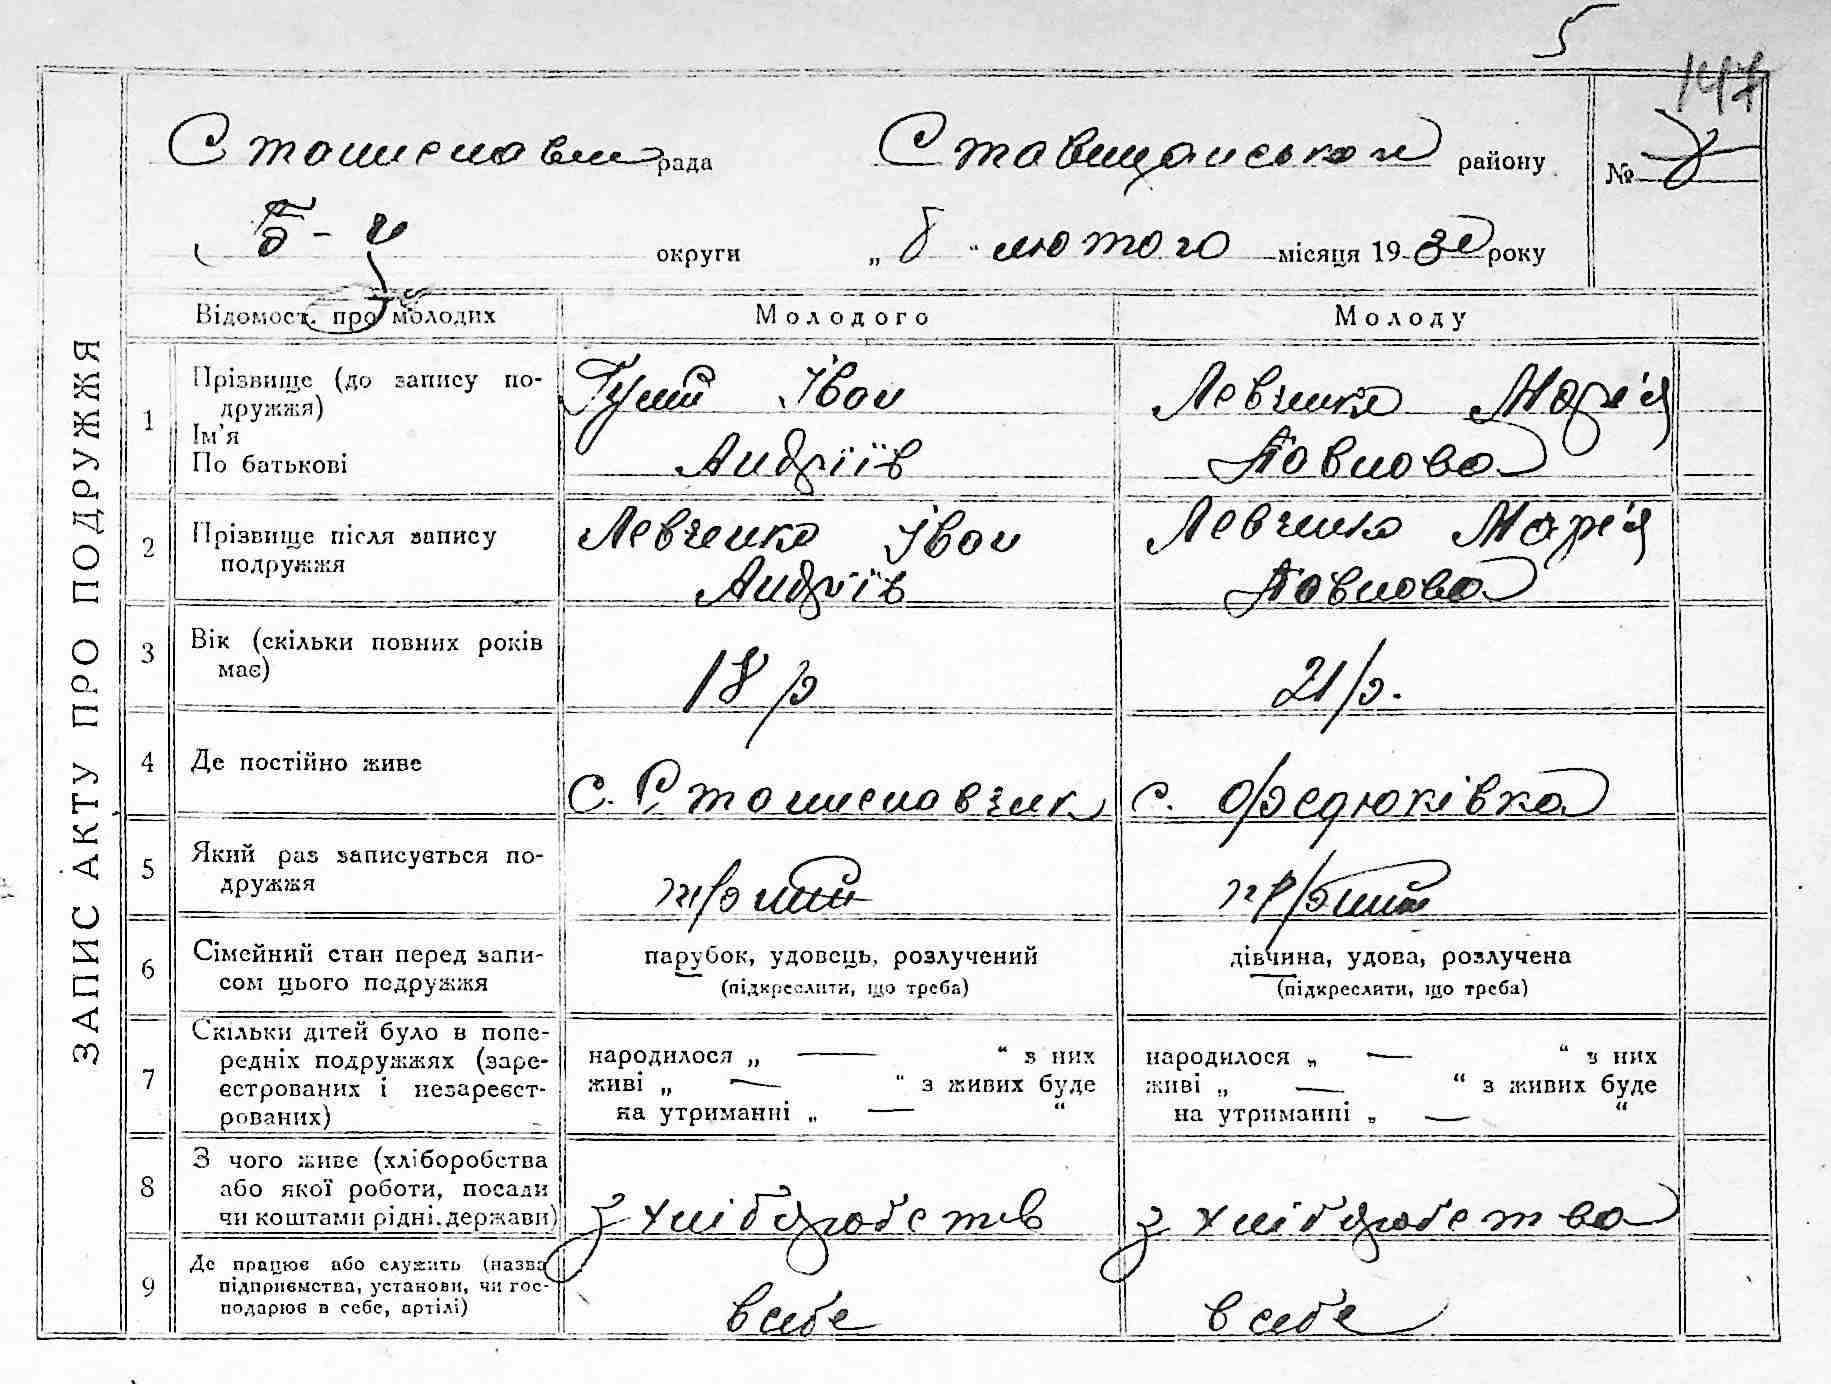 5
147
Станиславч рада Ставищанськой району №
Б-Ц округи „ 8 “ лютого місяця 1930 року
ЗАПИС АКТУ ПРО ПОДРУЖЖЯ
Відомост. про молодих Молодого Молоду
1 Прізвище (до запису по-
дружжя)
Ім'я
По батькові
Іван
Андріїв
Левченко Марія
Павлова
2 Прізвище після запису
подружжя
Левченко Іван
Андріїв
Левченко Марія
Павлова
3 Вік (скільки повних років
має)
18 р
21 р.
4 Де постійно живе
с. Станиславчик
с. Федюківка
5 Який раз записується по-
дружжя
первий
первий
6 Сімейний стан перед запи-
сом цього подружжя
парубок, удовець, розлучений
(підкреслити, що треба)
дівчина, удова, розлучена
(підкреслити, що треба)
7 Скільки дітей було в попе-
редніх подружжях (заре-
єстрованих і незареєст-
рованих)
народилося „ — “ з них
живі „ — “ з живих буде
на утриманні „ — “
народилося „ — “ з них
живі „ — “ з живих буде
на утриманні „ — “
8 З чого живе (хліборобства
або якої роботи, посади
чи коштами рідні, держави)
з хліборобств
з хліборобства
9 Де працює або служить (назва
підприємства, установи, чи гос-
подарює в себе, артілі)
в себе
в себе